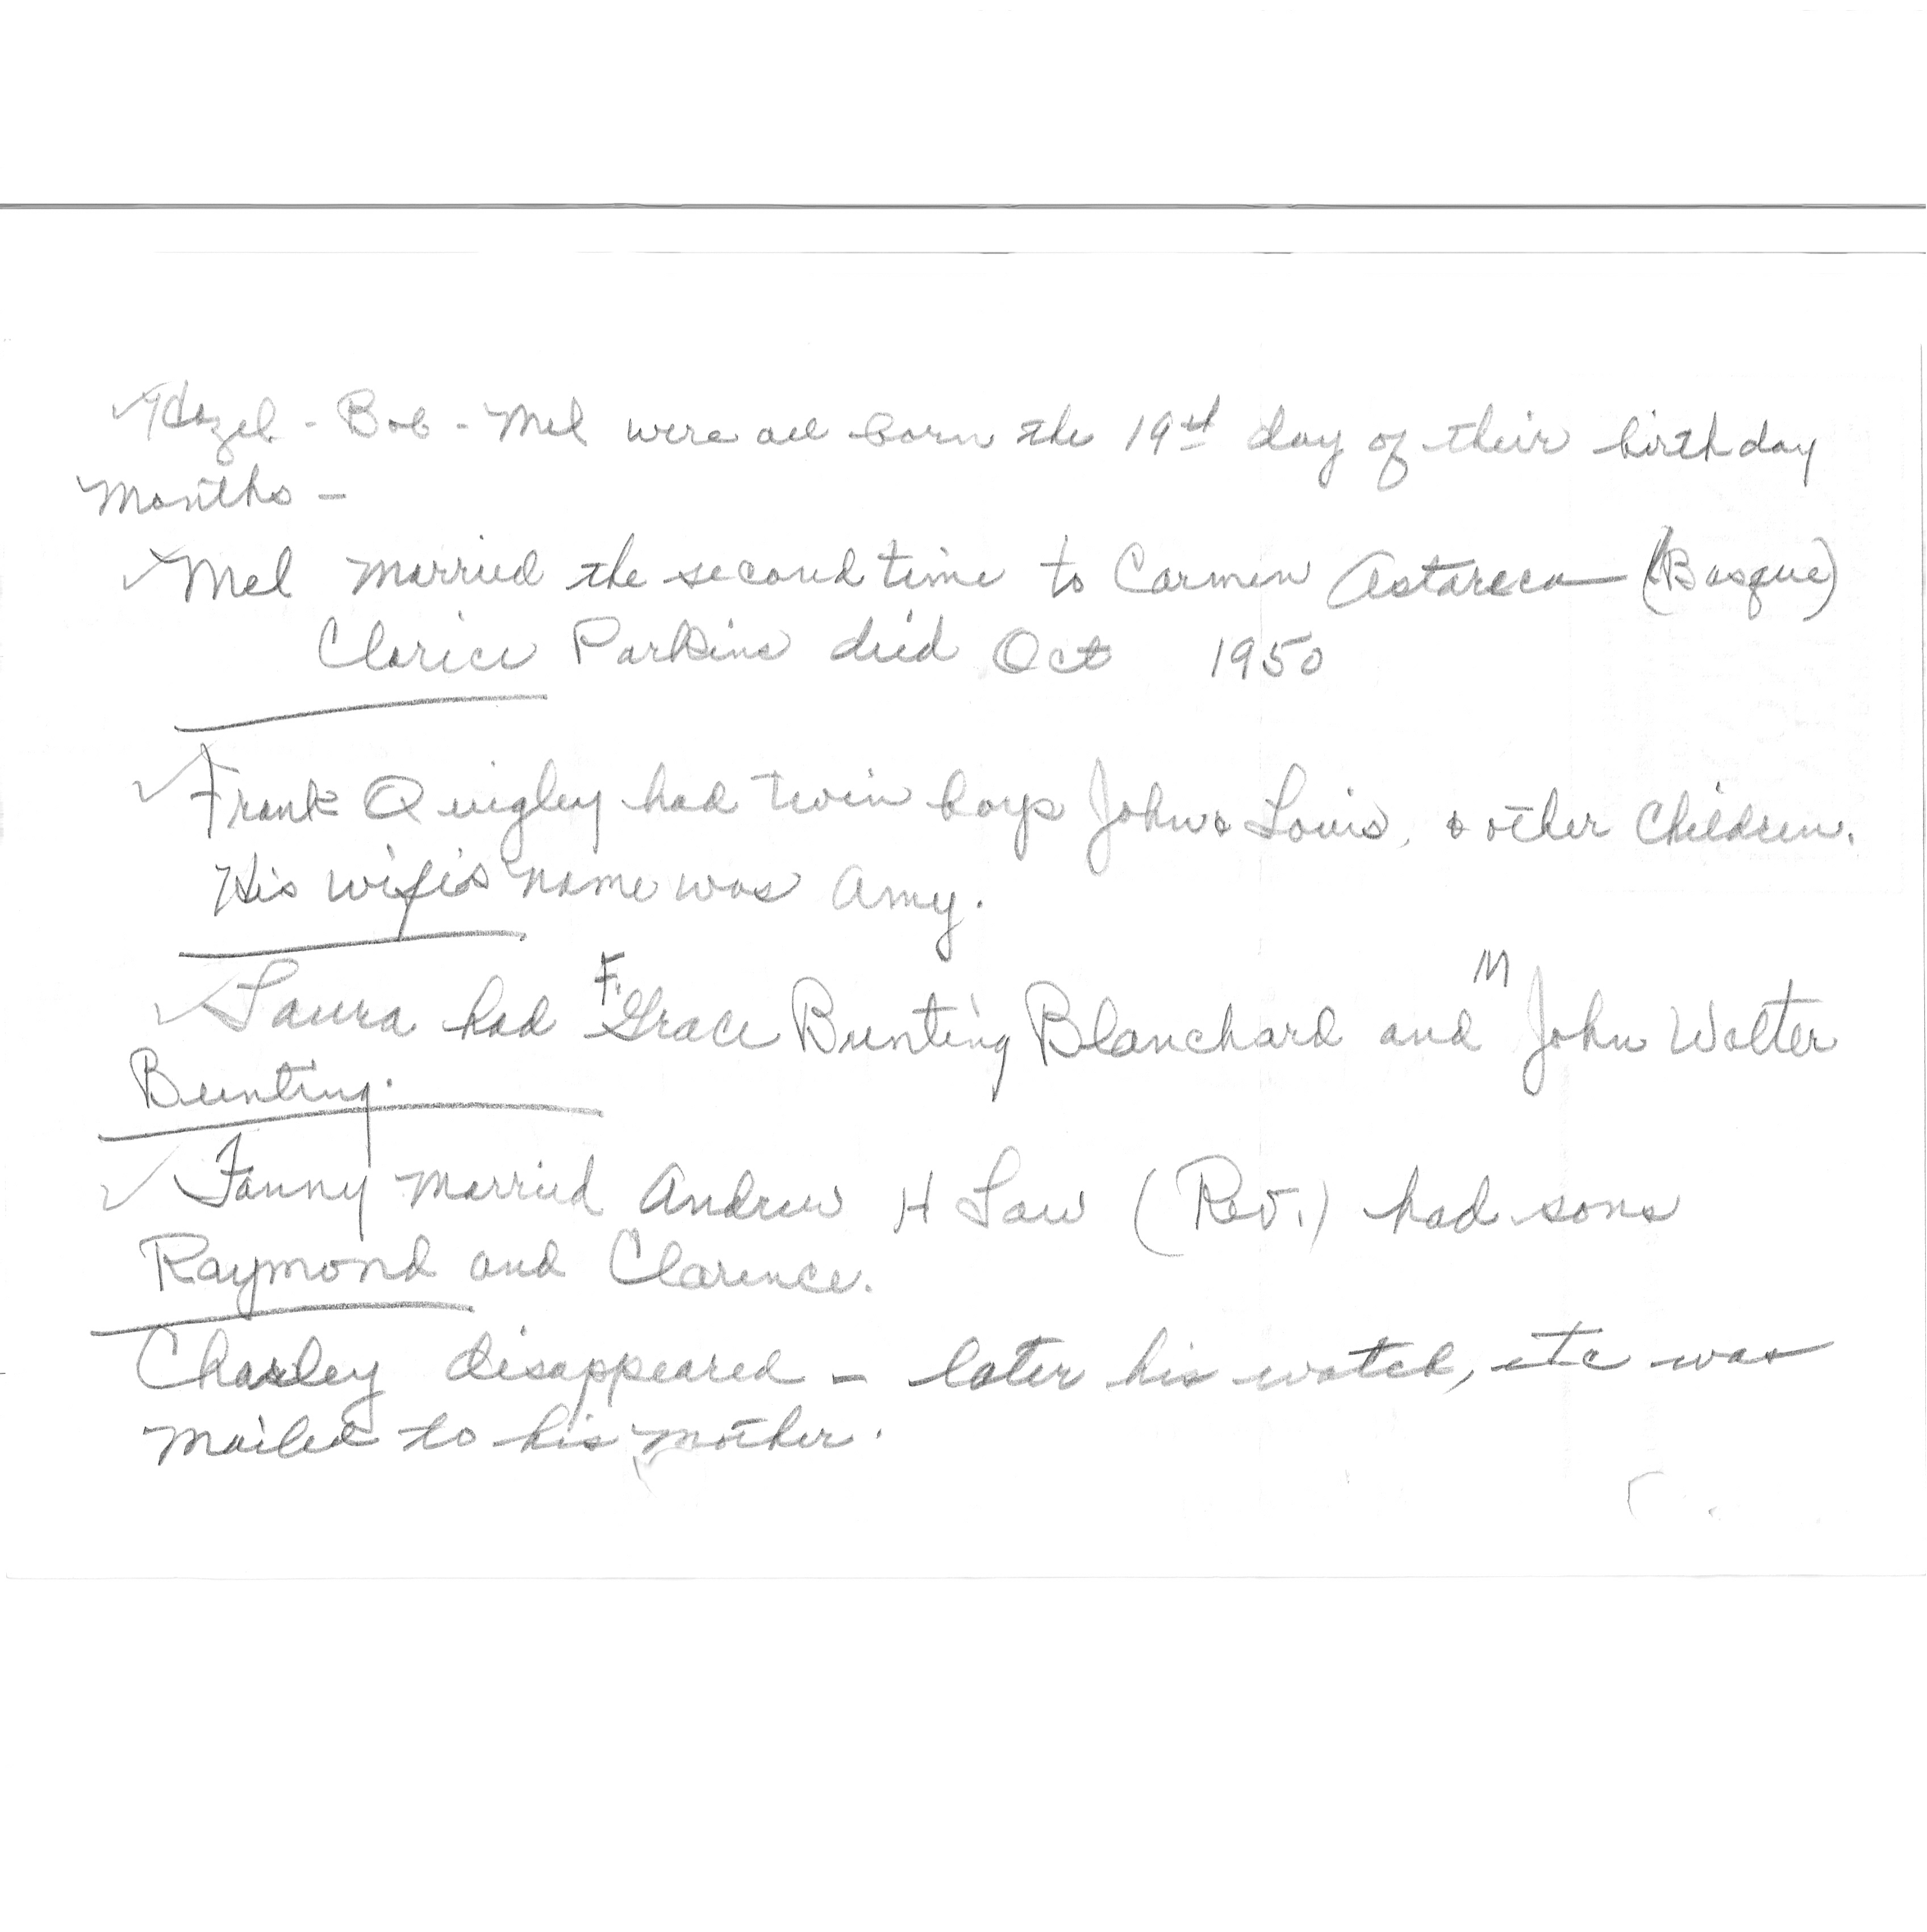 ✓ Hazel - Bob - Mel were all born the 19th day of their birthday
months -
✓ Mel married the second time to Carmen Astareca (Basque)
Clarice Parkins died Oct 1950
✓ Frank Quigley had twin boys John & Louis, & other children.
His wife's name was Amy.
✓ Laura had F. Grace Bunting Blanchard and M John Walter
Bunting.
✓ Fanny married Andrew H Law (Rev.) had sons
Raymond and Clarence.
Charley disappeared - later his watch, etc was
mailed to his mother.